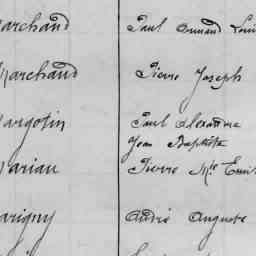 Marchand Paul Armand Loui
Marchand Pierre Joseph
Margotin Paul Alexandre
Jean Baptiste
Marian Pierre Mie Emil
Marigny André Auguste